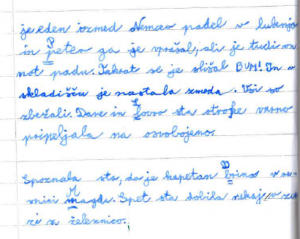 je eden izmed Nemcev padel v luknjo
in Peter ga je vprašal, ali je tudi on
not padu. Takrat se je slišal BUM! In v
skladišču je nastala zmeda. Vsi so
zbežali. Dane in Lovro sta otroke varno
pripeljala na osvobojeno.
Spoznala sta, da je kapetan
Magda. Spet sta dobila nekaj
z železnico.